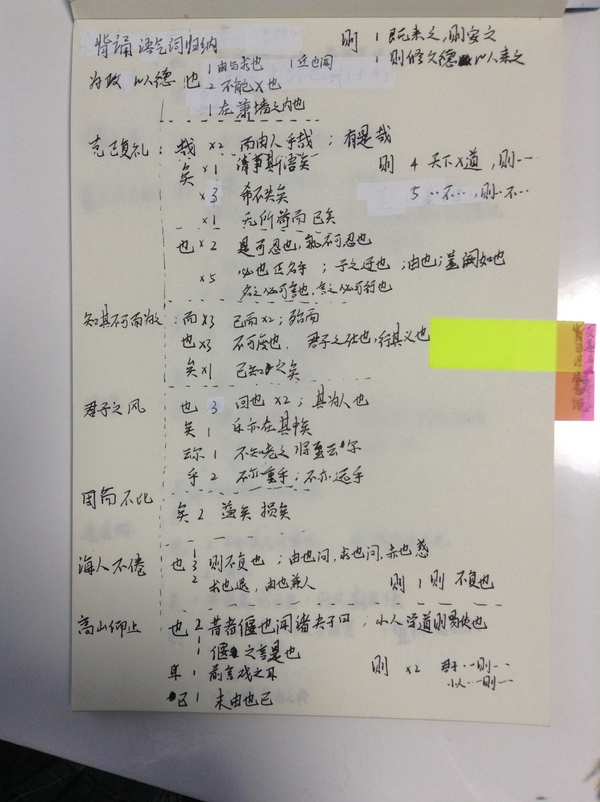 背诵 语气词归纳
则 1 既来之,则安之
1 则修文德 以来之
为政以德 也 1 由与求也 1 丘也闻
2 不能X也
1 在萧墙之内也
克己复礼: 哉 x2 而由人乎哉;有是哉
矣 x1 请事斯语矣
则 4 天下X道,则…
x3 希不失矣
5 …不…,则不…
x1 无所苟而已矣
也 x2 是可忍也,孰不可忍也
x5 必也正名乎;子之迂也;由也;盖阙如也
名之必可言也,言之必可行也
知其不可而为之:而 x3 已而x2;殆而
也 x3 不可废也. 君子之仕也,行其义也
矣 x1 已知之矣
君子之风 也 3 回也 x2;其为人也
矣 1 乐亦在其中矣
云尔 1 不知老之将至云尔
乎 2 不亦重乎;不亦远乎
周而不比
矣 2 益矣 损矣
诲人不倦 也 1 则不复也;由也问,求也问,赤也惑
3
2 求也退,由也兼人
则 1 则 不复也
高山仰止 也 2 昔者偃也闻诸夫子曰;小人学道则易使也
1 偃之言是也
耳 1 前言戏之耳
则 x2 君子…则…
小人…则…
已 1 末由也已